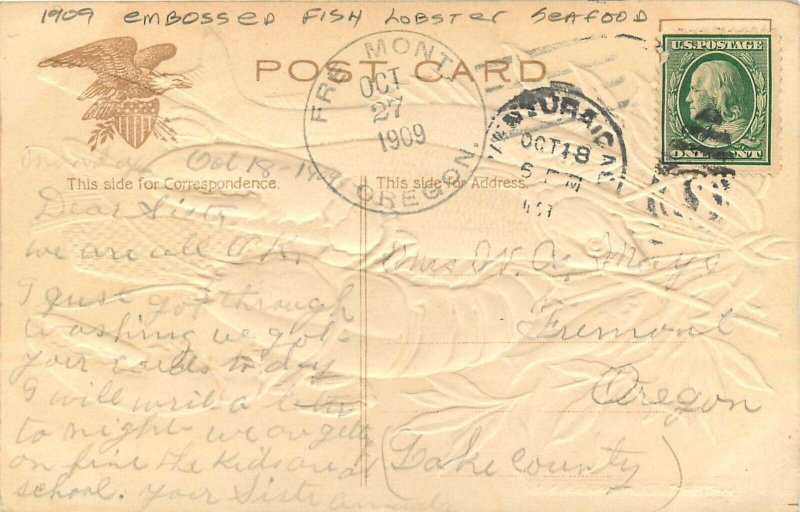 1909 EMBOSSED FISH LOBSTER SEAFOOD
POST CARD
FREMONT
OCT
27
1909
OREGON.
VENTURA, CAL.
OCT 18
6 PM
U.S. POSTAGE
ONE CENT
Monday Oct 18-1909
This side for Correspondence.
Dear Sister
we are all O.K.
I just got through
washing we got
your cards to day
I will write a letter
to night we are getting
on fine the kids are at
school. your Sister
This side for Address.
Mrs
Fremont
Oregon
(Lake County)